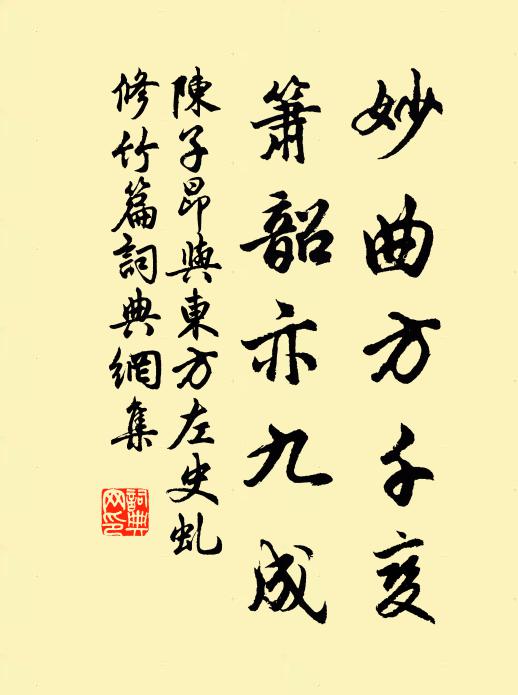 妙曲方千変
箫韶亦九成
陳子昂與東方左史虬
修竹篇詞典網集
詞典网印